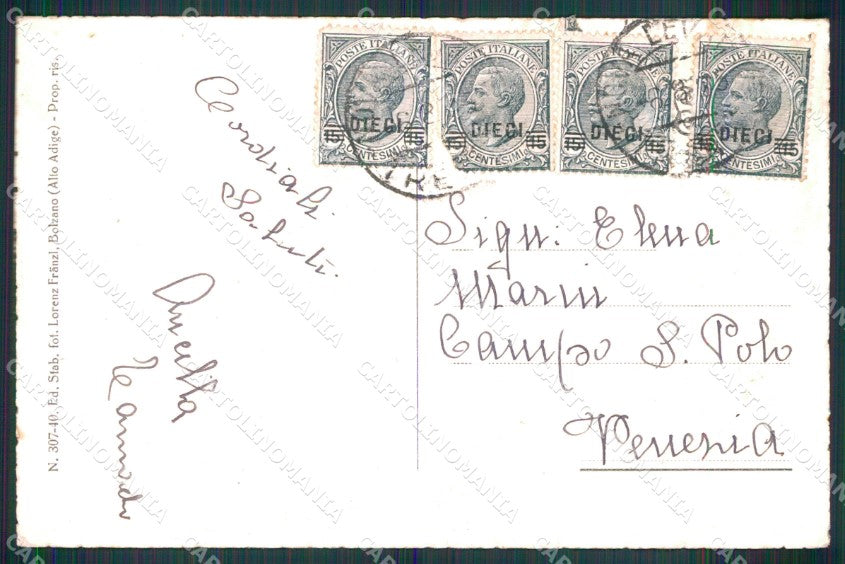 POSTE ITALIANE POSTE ITALIANE POSTE ITALIANE POSTE ITALIANE
15 DIECI 15 15 DIECI 15 15 DIECI 15 15 DIECI 15
CENTESIMI CENTESIMI CENTESIMI CENTESIMI
Cordiali
Saluti
Ancilla
Sign: Elena
Marin
Campo S. Polo
Venezia
N. 307-40, Ed. Stab. fot. Lorenz Fränzl, Bolzano (Alto Adige) - Prop. ris.
CARTOLINOMANIA